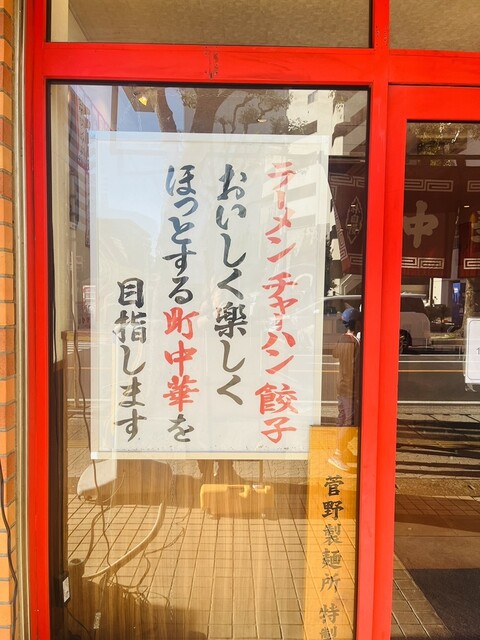 ラーメンチャーハン餃子
おいしく楽しく
ほっとする町中華を
目指します
菅野製麺所 特製
中